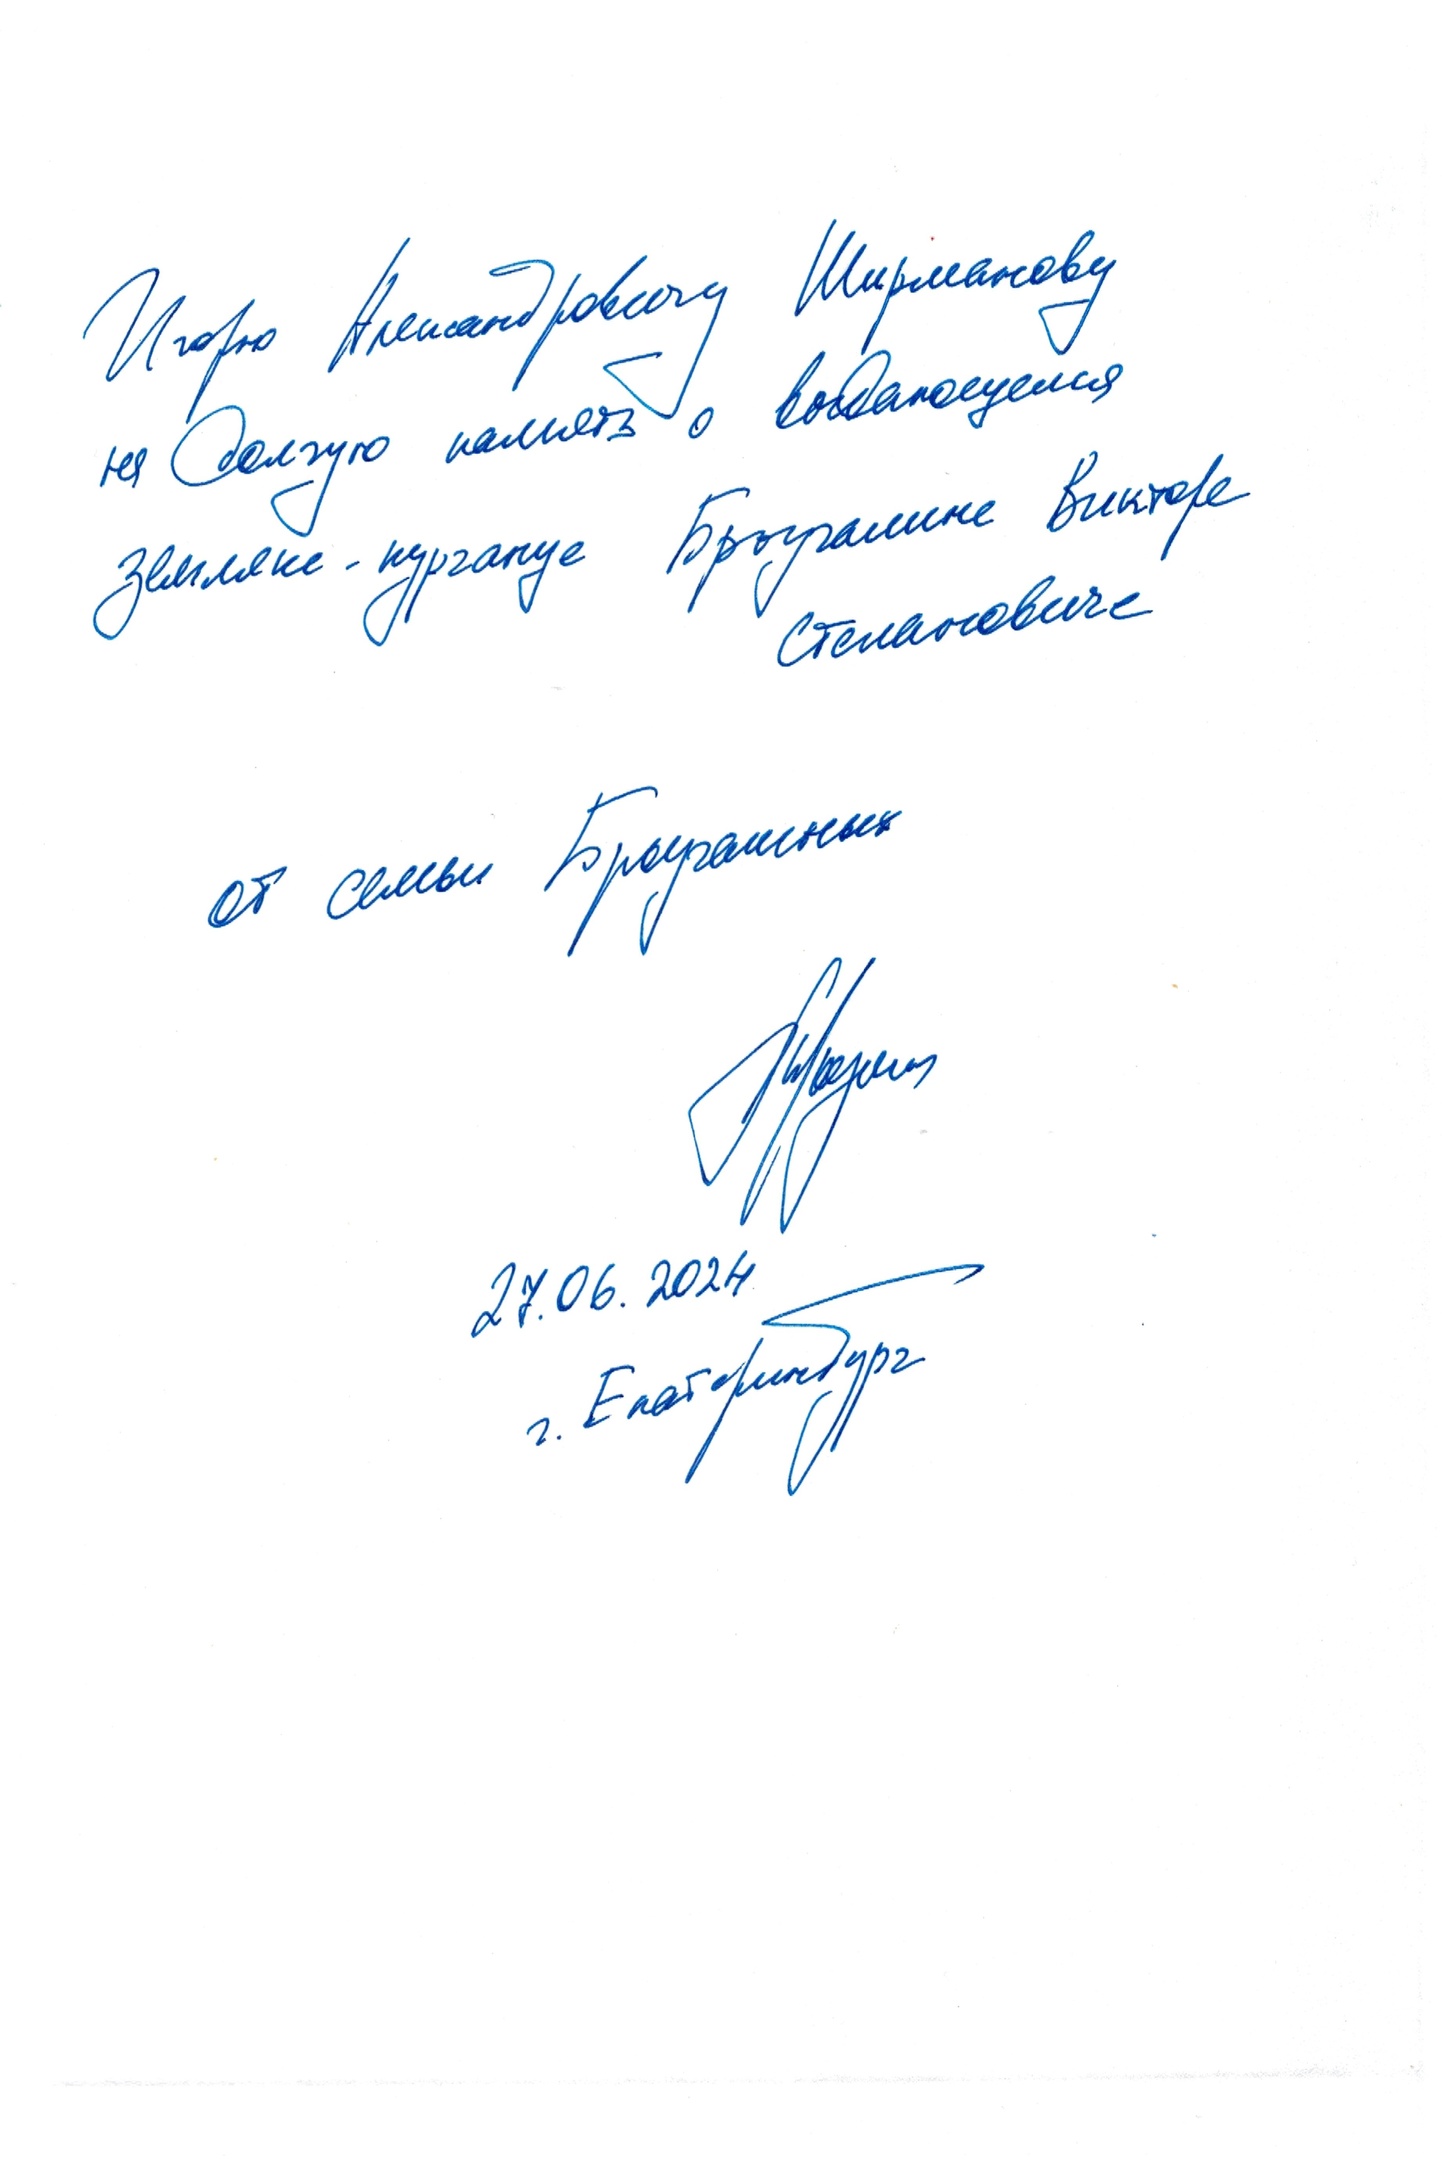 Игорю Александровичу Ширманову
на долгую память о выдающемся
земляке-курганце Брызгалине Викторе
Степановиче
от семьи Брызгалиных
27.06.2024
г. Екатеринбург